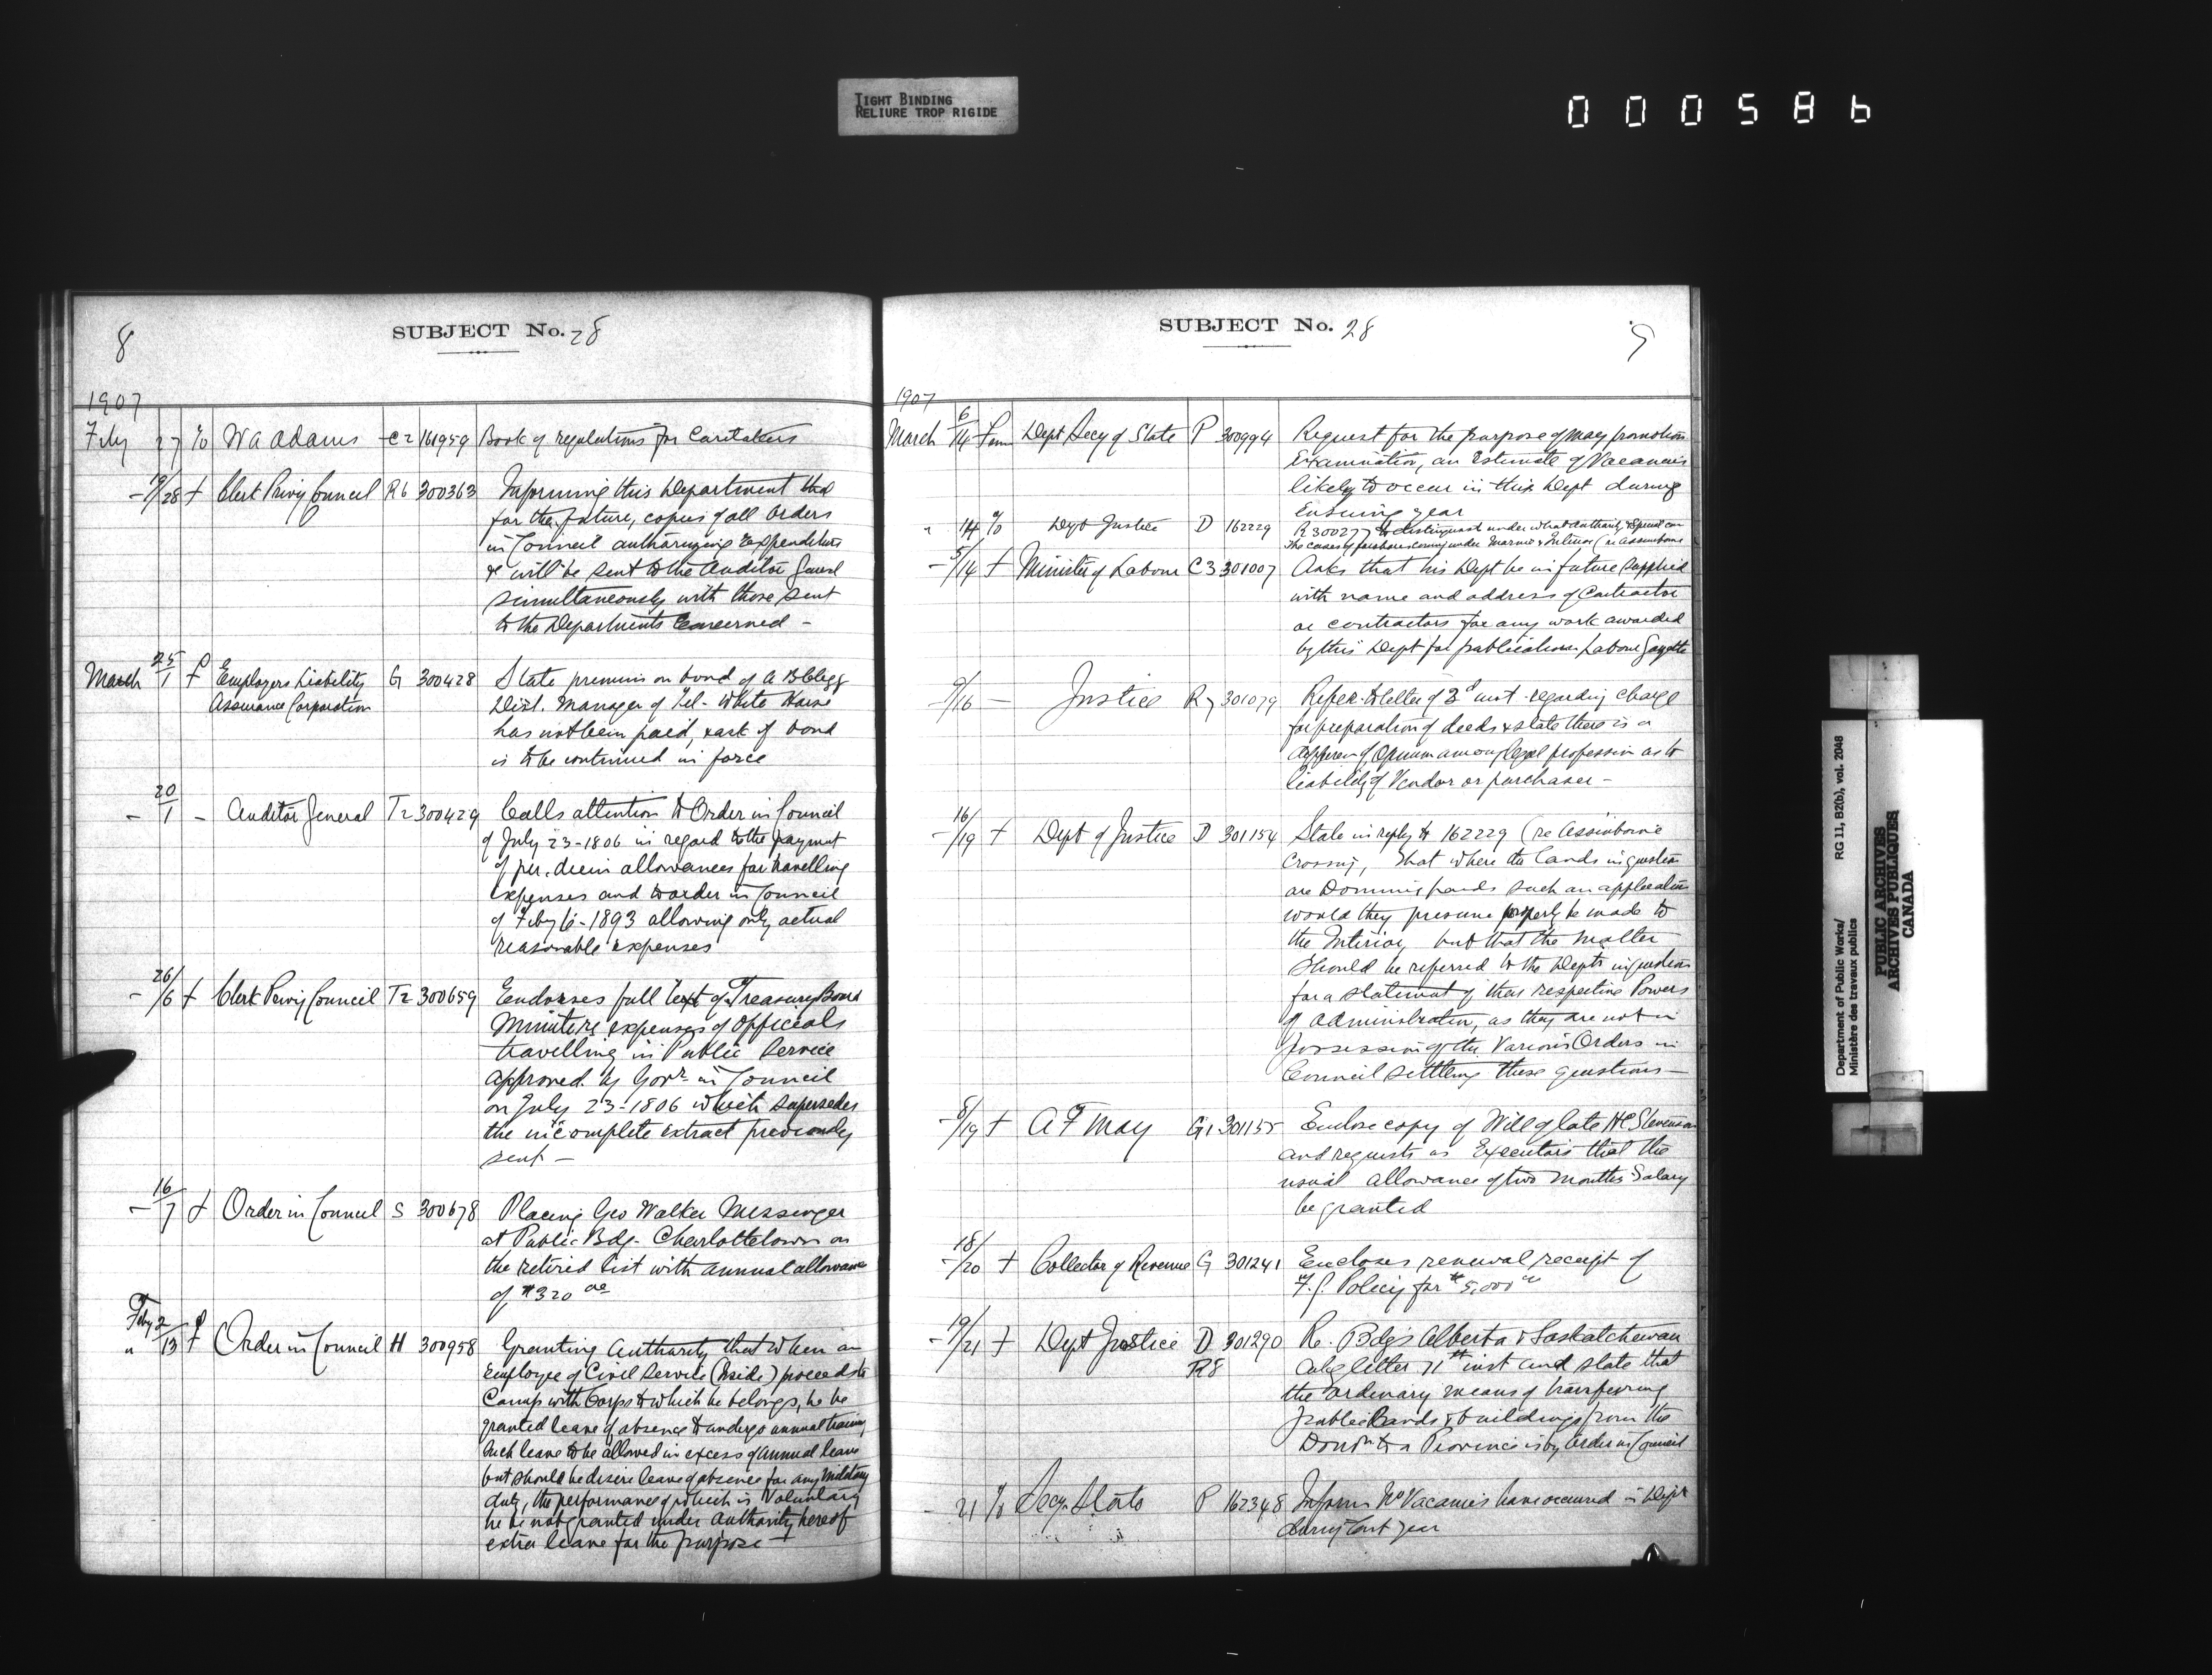 TIGHT BINDING
RELIURE TROP RIGIDE
000586
8
SUBJECT No. 28
1907
Feby 27 % W A Adams C2 161959 Book of regulations for Caretakers
- 19/28 f Clerk Privy Council R6 300363 Informing this Department that
for the future, copies of all Orders
in Council authorizing Expenditure
& will be sent to the Auditor General
simultaneously with those sent
to the Departments Concerned -
March 25/1 f Employers Liability G 300428 State premium on bond of A B Clegg
Assurance Corporation Dist. Manager of Tel - White Horse
has not been paid, & ask if bond
is to be continued in force
- 20/1 - Auditor General T2 300429 Calls attention to Order in Council
of July 23-1806 in regard to the payment
of per. diem allowances for travelling
expenses and to order in Council
of Feby 6-1893 allowing only actual
reasonable expenses
- 26/6 f Clerk Privy Council T2 300659 Endorses full text of Treasury Board
Minute re expenses of officials
travelling in Public Service
approved by Govr in Council
on July 23-1806 which supersedes
the incomplete extract previously
sent -
- 16/7 f Order in Council S 300678 Placing Geo Walker Messenger
at Public Bdg - Charlottetown on
the retired list with annual allowance
of $320 00
Feby 2
" 13 f Order in Council H 300958 Granting Authority that when an
employee of Civil Service (Inside) proceeds to
Camp with Corps to which he belongs, he be
granted leave of absence to undergo annual training,
such leave to be allowed in excess of annual leave
but should he desire leave of absence for any Military
duty, the performance of which is Voluntary
he be not granted under authority hereof
extra leave for the purpose -
SUBJECT No. 28
9
1907
March 6/14 Dept Secy of State P 300994 Request for the purpose of May promotion
Examination, an Estimate of Vacancies
likely to occur in this Dept during
Ensuing year
" 14 % Dept Justice D 162229 R 300277 to distinguish under what authority
the cases coming under Marine & Interior (re Assiniboine
- 5/14 f Minister of Labour C3 301007 Asks that his Dept be in future supplied
with name and address of Contractor
or contractors for any work awarded
by this Dept for publication Labour Gazette
- 9/16 - Justice R7 301079 Refer to letter of 3d inst - regarding charge
for preparation of deeds & state there is a
differen of Opinion among legal profession as to
liability of Vendor or purchaser -
- 16/19 f Dept of Justice D 301154 State in reply to 162229 (re Assiniboine
Crossing, that where the lands in question
are Dominion lands such an application
would they presume properly be made to
the Interior, but that the matter
should be referred to the Depts in question
for a statement of their respective Powers
of administration, as they are not in
possession of the Various Orders in
Council settling these questions -
- 8/19 f A F May G1 301155 Enclose copy of Will of late H C Stevenson
and requests as Executors that the
usual allowance of two months Salary
be granted
- 18/20 f Collector of Revenue G 301241 Encloses renewal receipt of
Policy for $5,000 00
- 19/21 f Dept Justice D 301290 Re. Bdgs Alberta & Saskatchewan
R8 letter 11th inst and state that
the ordinary means of transferring
public lands & buildings from the
Domn to a Province is by Order in Council
- 21 % Secy State P 162348 Inform No Vacancies have occurred in Dept
during last year
Department of Public Works/
Ministère des travaux publics
RG 11, B2(b), vol. 2048
PUBLIC ARCHIVES
ARCHIVES PUBLIQUES
CANADA